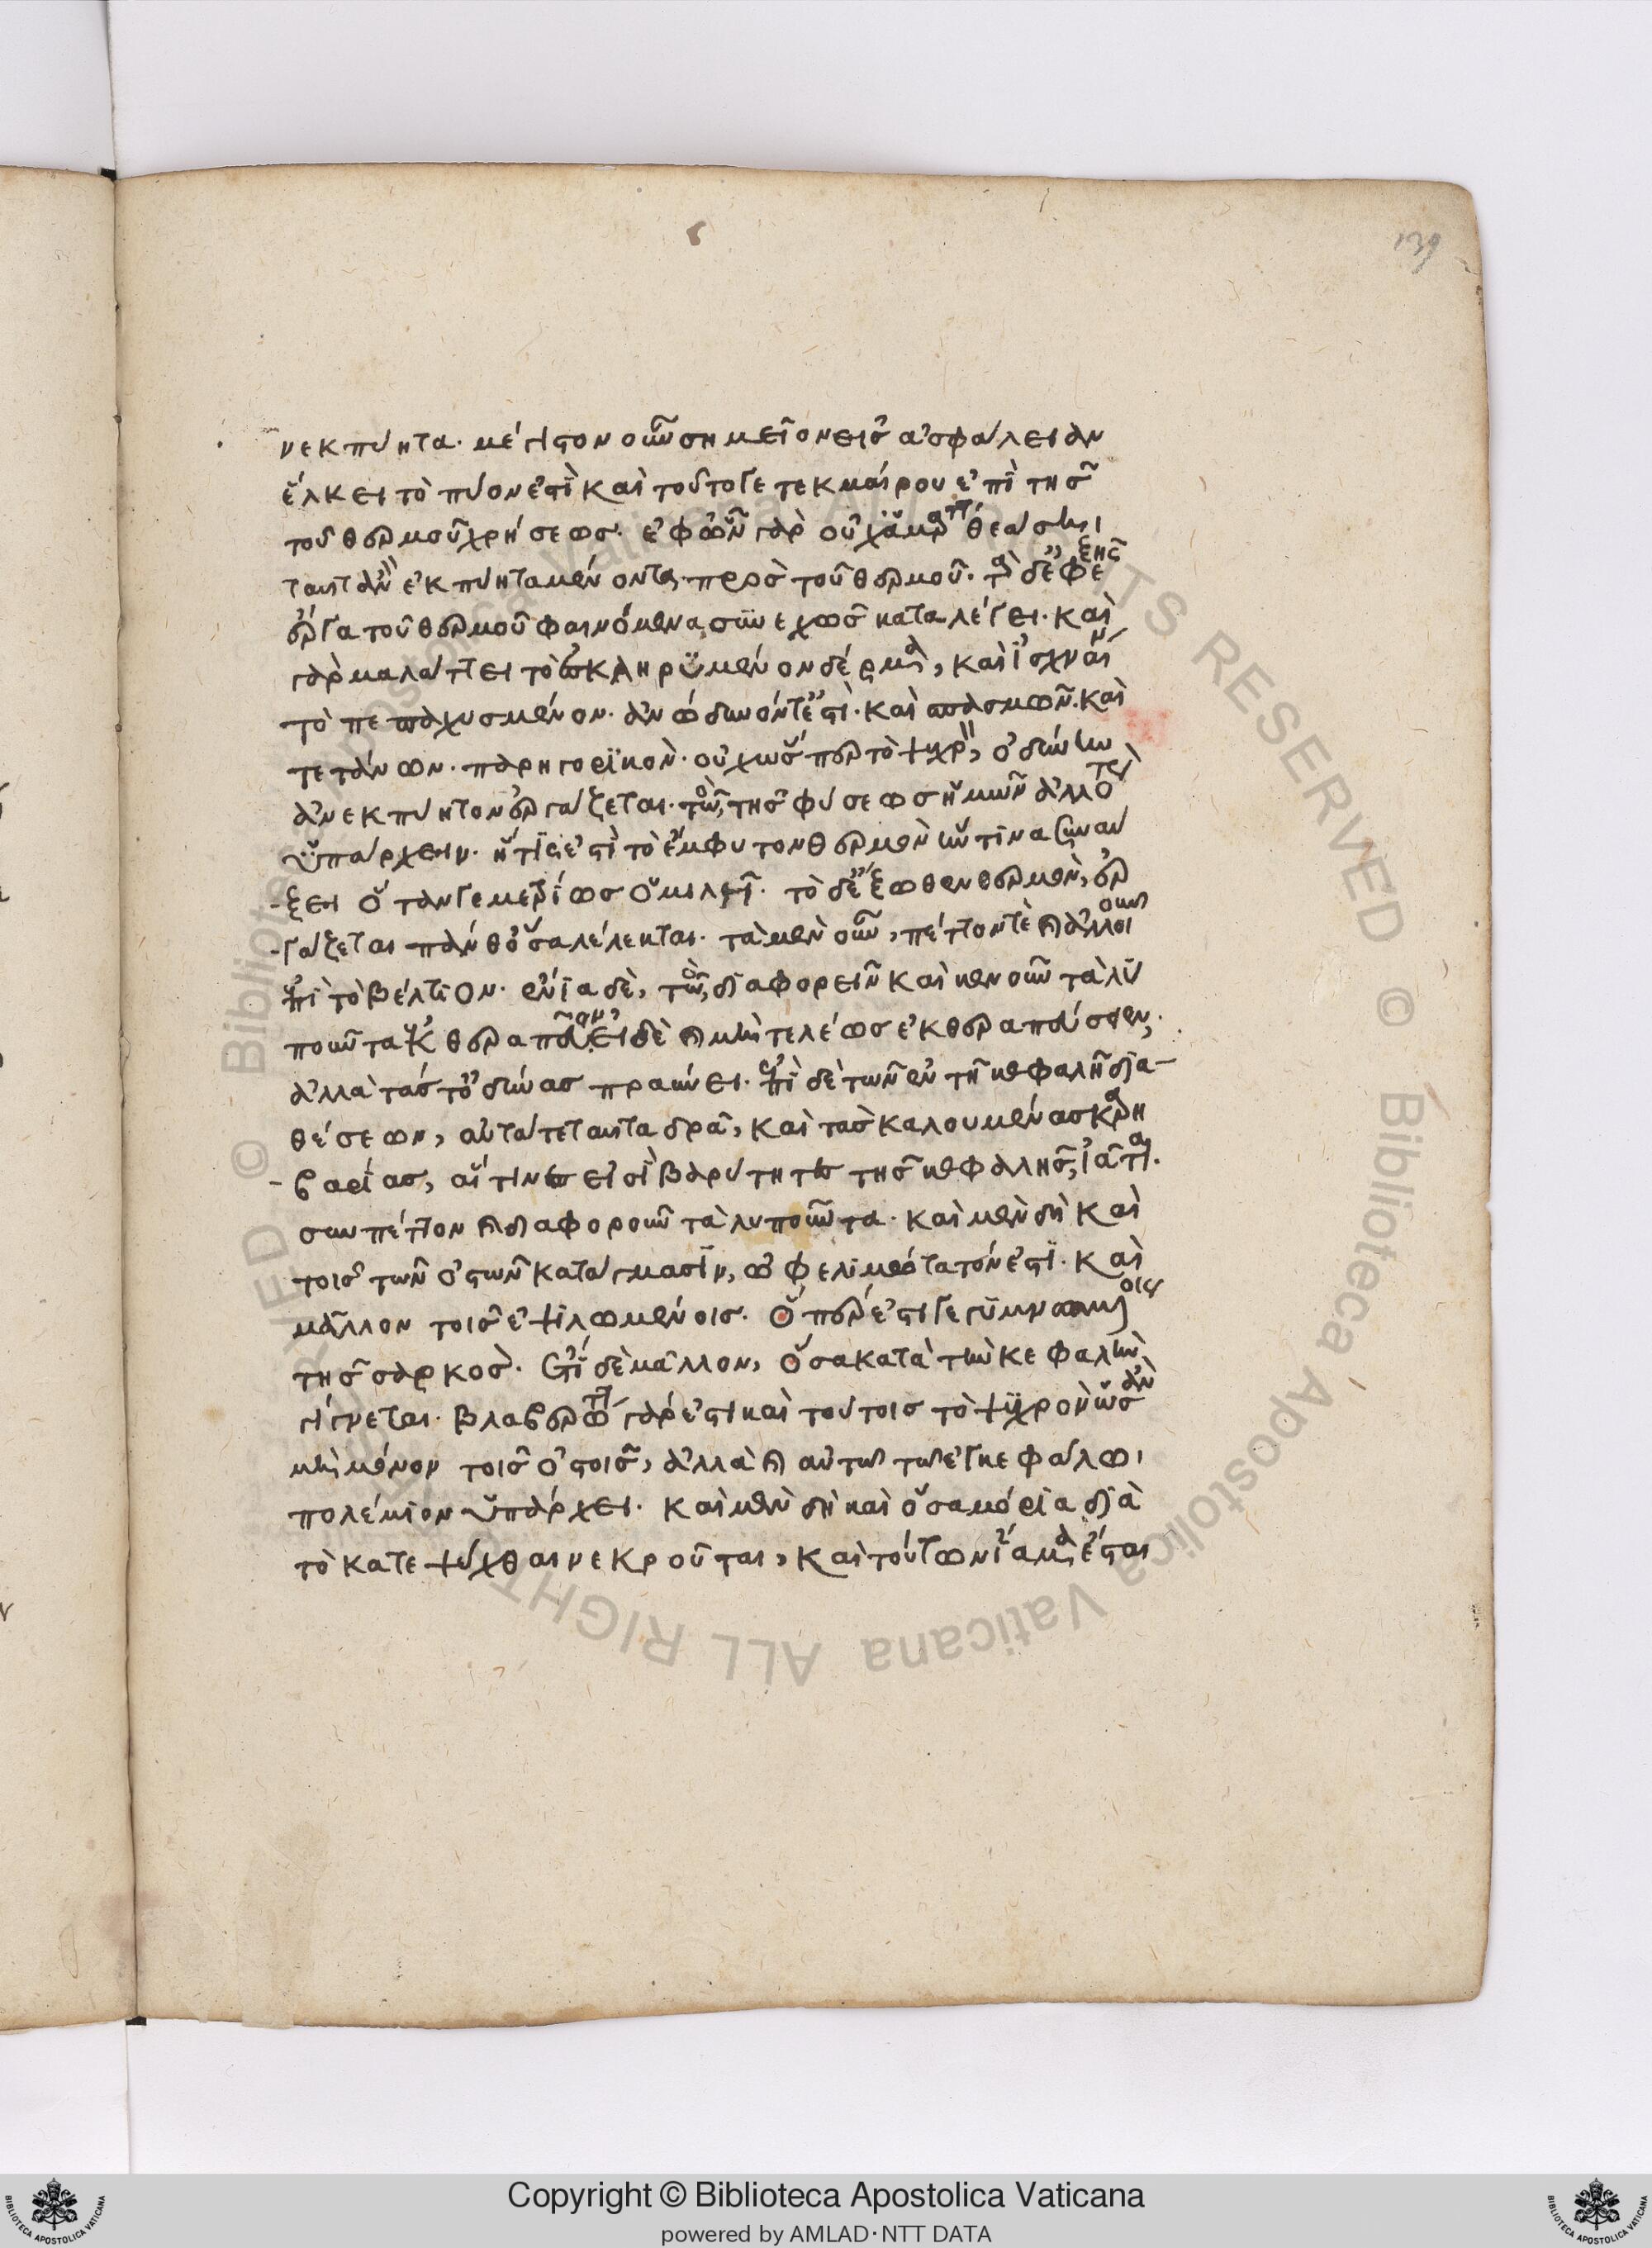 139
νεκπύητα. μέγιστον οὖν σημεῖον εἰς ἀσφάλειαν
ἕλκει τὸ πύον ἐστὶ καὶ τοῦτό γε τεκμαίρου ἐπὶ τῆς
τοῦ θερμοῦ χρήσεως. ἐφ' ὧν γὰρ οὐχ ἅμα θεάσηι
ταῦτ' ἂν ἐκπύητα μένοντα πρὸς τοῦ θερμοῦ. τὰ δ' ἐφεξῆς
ἔργα τοῦ θερμοῦ φαινόμενα συνεχῶς καταλέγει. καὶ
γὰρ μαλάττει τὸ ἐσκληρυμένον δέρμα, καὶ ἰσχναίν
τὸ πεπαχυσμένον. ἀνώδυνόν τ' ἐστὶ. καὶ σπασμῶν. καὶ
τετάνων. παρηγορικὸν. οὐχ ὥσπερ τὸ ψυχρὸν, ὀδύνην
ἀνεκπύητον ἐργάζεται. τῶ, τῆς φύσεως ἡμῶν ἀλλότρ
ὑπάρχειν. ἥτις ἐστὶ τὸ ἔμφυτον θερμὸν ὥν τινα συναύ
-ξει ὅταν γε μετρίως ὁμιλῆ. τὸ δ' ἔξωθεν θερμὸν, ἐρ
-γάζεται πάνθ' ὅσα λέλεκται. τὰ μὲν οὖν, πέττον τὲ καὶ ἀλλοιοῦν
ἐπὶ τὸ βέλτιον. ἔνια δὲ, τῶ, διαφορεῖν καὶ κενοῦν τὰ λυ
ποῦντα κ' θεραπεῦον. εἰ δὲ καὶ μὴ τελέως ἐκθεραπεύσειεν,
ἀλλὰ τάς τ' ὀδύνας πραύνει. ἐπὶ δὲ τῶν ἐν τῆ κεφαλῆ δια-
θέσεων, αὐτά τε ταῦτα δρᾶ, καὶ τὰς καλουμένας καρη
-βαρίας, αἵτινες εἰσὶ βαρύτητες τῆς κεφαλῆς, ἰᾶται.
συμπέττον καὶ διαφοροῦν τὰ λυποῦντα. καὶ μὲν δὴ καὶ
τοῖς τῶν ὀστῶν κατάγμασιν, ὠφελιμώτατόν ἐστι. καὶ
μᾶλλον τοῖς ἐψιλωμένοις. ὅπερ ἐστι γεγυμνωμένοις
τῆς σαρκὸς. ἔτι δὲ μᾶλλον, ὅσα κατὰ τὴν κεφαλὴν
γίγνεται. βλαβερώτ γάρ ἐστι καὶ τούτοις τὸ ψυχρὸν ὡς ἂν
μὴ μόνον τοῖς ὀστοῖς, ἀλλὰ καὶ αὐτῶ τῶ ἐγκεφάλωι
πολέμιον ὑπάρχει. καὶ μὲν δὴ καὶ ὅσα μόρια διὰ
τὸ κατεψύχθαι νεκροῦται, καὶ τούτων ἴαμα ἔσται
© Biblioteca Apostolica Vaticana ALL RIGHTS RESERVED
Copyright © Biblioteca Apostolica Vaticana
powered by AMLAD·NTT DATA